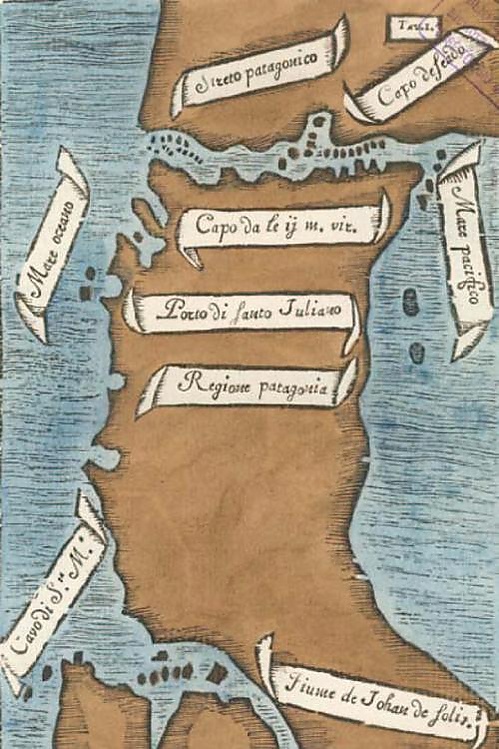 Tav. I.
Streto patagonico
Capo deseado
Mare oceano
Capo da le ij m. vir.
Mare pacifico
Porto di santo Iuliano
Regione patagonia
Cavo di S.ta M.a
Fiume de Iohan de solis.